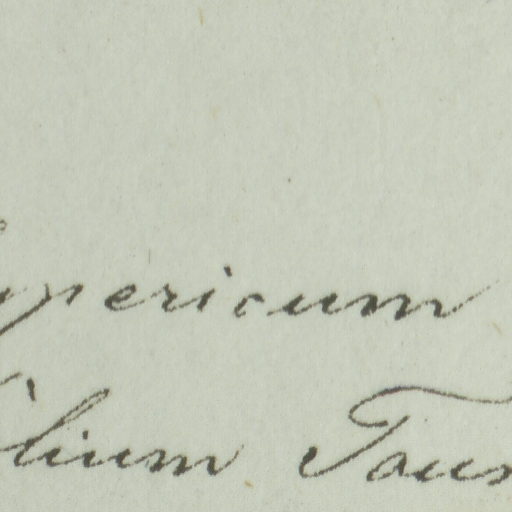 ypericum
lium Tour